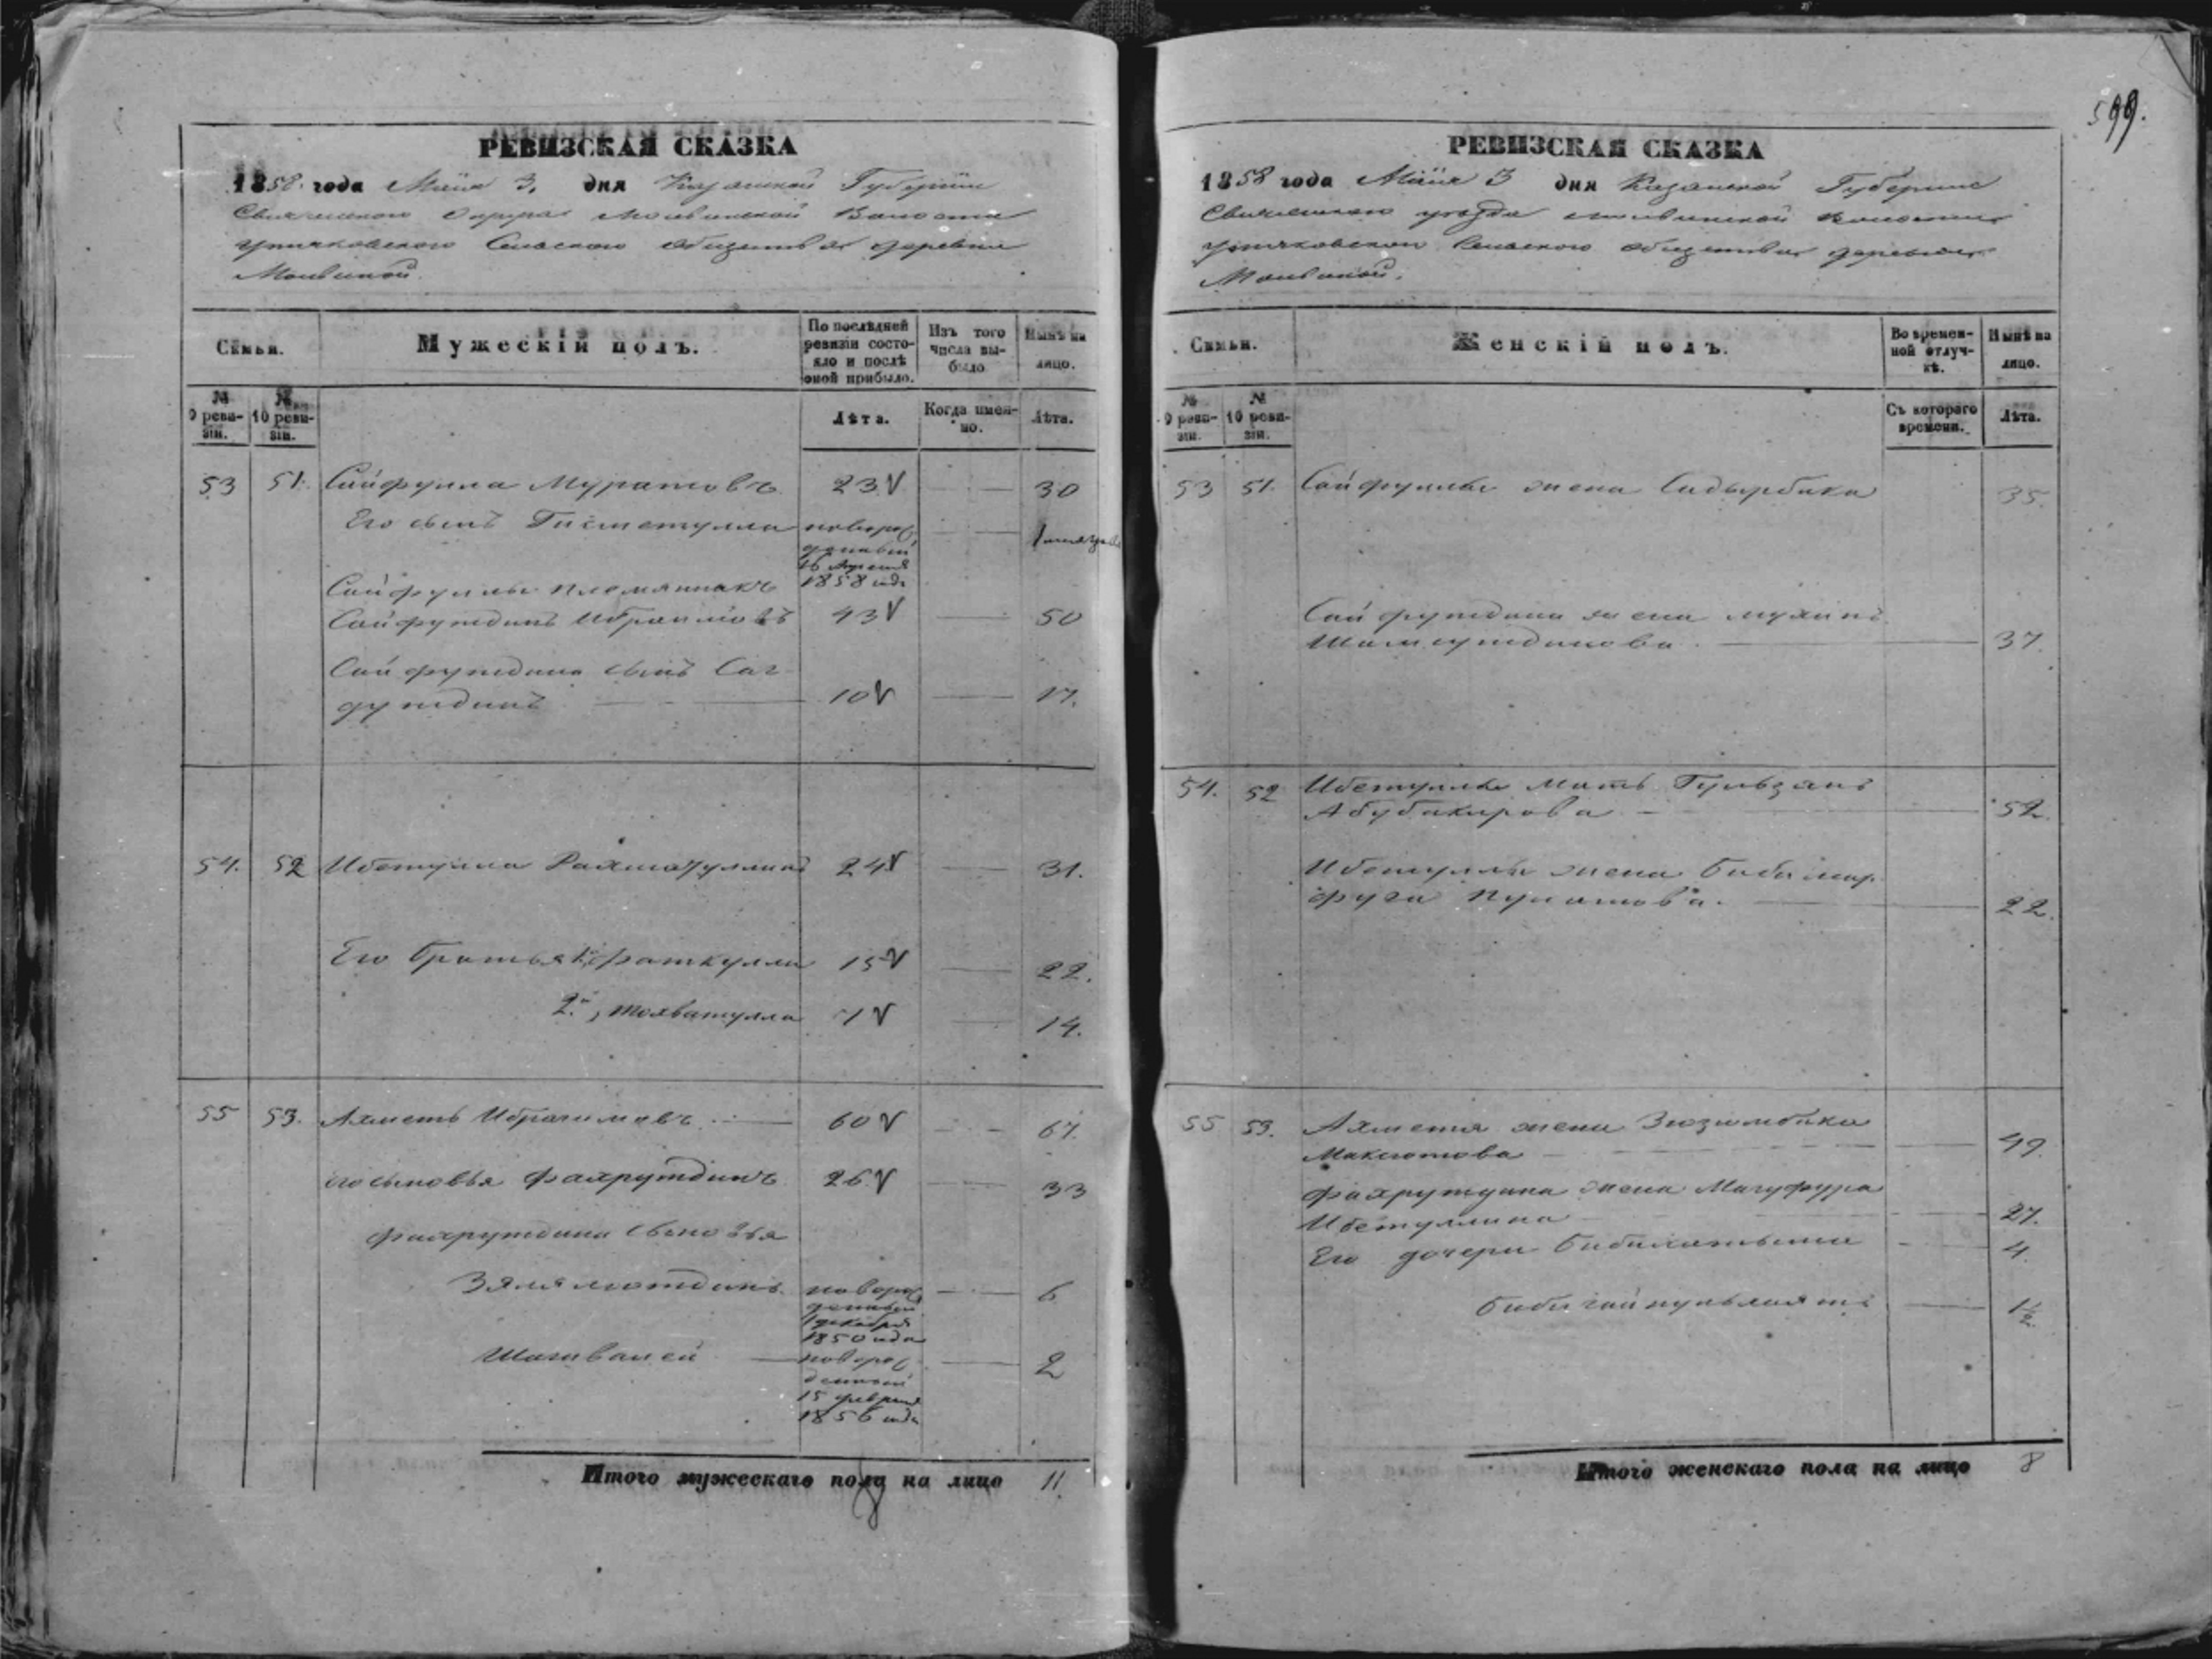 РЕВИЗСКАЯ СКАЗКА
1858 года Маія 3. дня Казанской Губерніи
Свіяжскаго Округа Молвинской Волости
Сельскаго общества деревни
Молвиной.
Семьи.
Мужескій полъ.
По послѣдней ревизіи состояло и послѣ оной прибыло.
Изъ того числа выбыло
Нынѣ на лицо.
№ 9 ревизіи.
№ 10 ревизіи.
Лѣта.
Когда именно.
Лѣта.
53 51. Сайфулла Муратовъ 23 V 30
Его сынъ новорожденный 16 Апреля 1858 года
Сайфуллы племянникъ
Сайфутдинъ Ибраимовъ 43 V 50
Сайфутдина сынъ Саг-
дутдинъ 10 V 17.
54. 52 Ибетулла Рахматуллинъ 24 V 31.
Его братья 1й Фаткулла 15 V 22.
2й, Тохватулла 7 V 14.
55 53. Ахметь Ибрагимовъ 60 V 67.
его сыновья Фахрутдинъ 26 V 33
Фахрутдина сыновья
Зялялютдинъ новорожденный 1 декабря 1850 года 6
Шагивалей новорожденный 15 февраля 1856 года 2
Итого мужескаго пола на лицо 11.
599.
РЕВИЗСКАЯ СКАЗКА
1858 года Маія 3 дня Казанской Губерніи
Свіяжскаго уезда Молвинской Волости
Сельскаго общества деревни
Молвиной.
Семьи.
Женскій полъ.
Во временной отлучкѣ.
Нынѣ на лицо.
№ 9 ревизіи.
№ 10 ревизіи.
Съ котораго времени.
Лѣта.
53 51. Сайфуллы жена Садырбика 35.
Сайфутдина жена
Шамсутдинова 37.
54. 52 Ибетуллы мать Гульзянъ
Абубакирова 52.
Ибетуллы жена Биби
22.
55 53. Ахметя жена Зюзюмбика
Максютова 49.
Фахрутдина жена Магуфура
Ибетуллина 27.
Его дочери 4.
1½
Итого женскаго пола на лицо 8